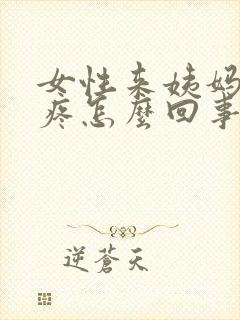 女性来姨妈
疼怎麼回事
逆蒼天